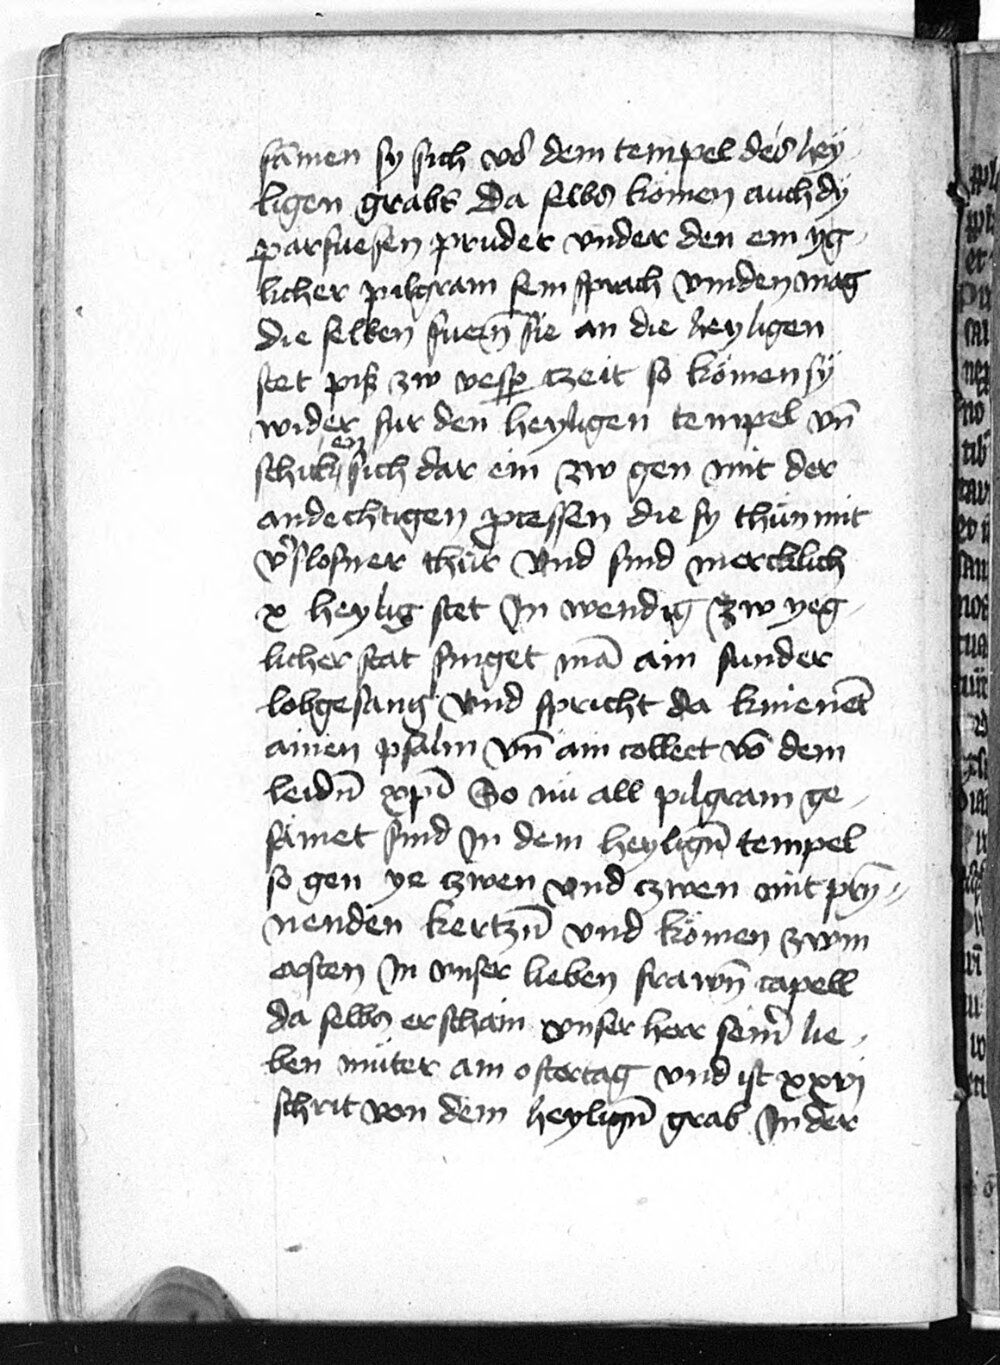 sāmen sy sich vō dem tempel des hey-
ligen grabs Da selbs kömen auch dÿ
parfuesen pruder vnder den ein yg-
licher pilgram sein sprach vinden mag
die selben fuern̄ sie an die heyligen
stet pisz zw vesꝑ czeit so kömen sÿ
wider fur den heyligen tempel vn̄
schicken sich dar ein zw gen mit der
andechtigen ꝓcessen die sy thün mit
v̾slosner thür Vnd sind mercklich
x heylig stet In wendig zw yeg-
licher stat singet mā ain sunder
lobgesang Vnd spricht da knienēt
ainen psalm vn̄ ain collect vō dem
leidn̄ xp̄i So nü all pilgram ge-
sāmet sind In dem heylign̄ tempel
so gen ye czwen vnd czwen mit prīn-
nenden kertzn̄ vnd kömen zwm
ersten In vnser lieben frawn̄ capell
da selbs erschain vnser herr sein̄ lie-
ben müter am ostertag vnd ist xxvj
schrit von dem heylign̄ grab In der